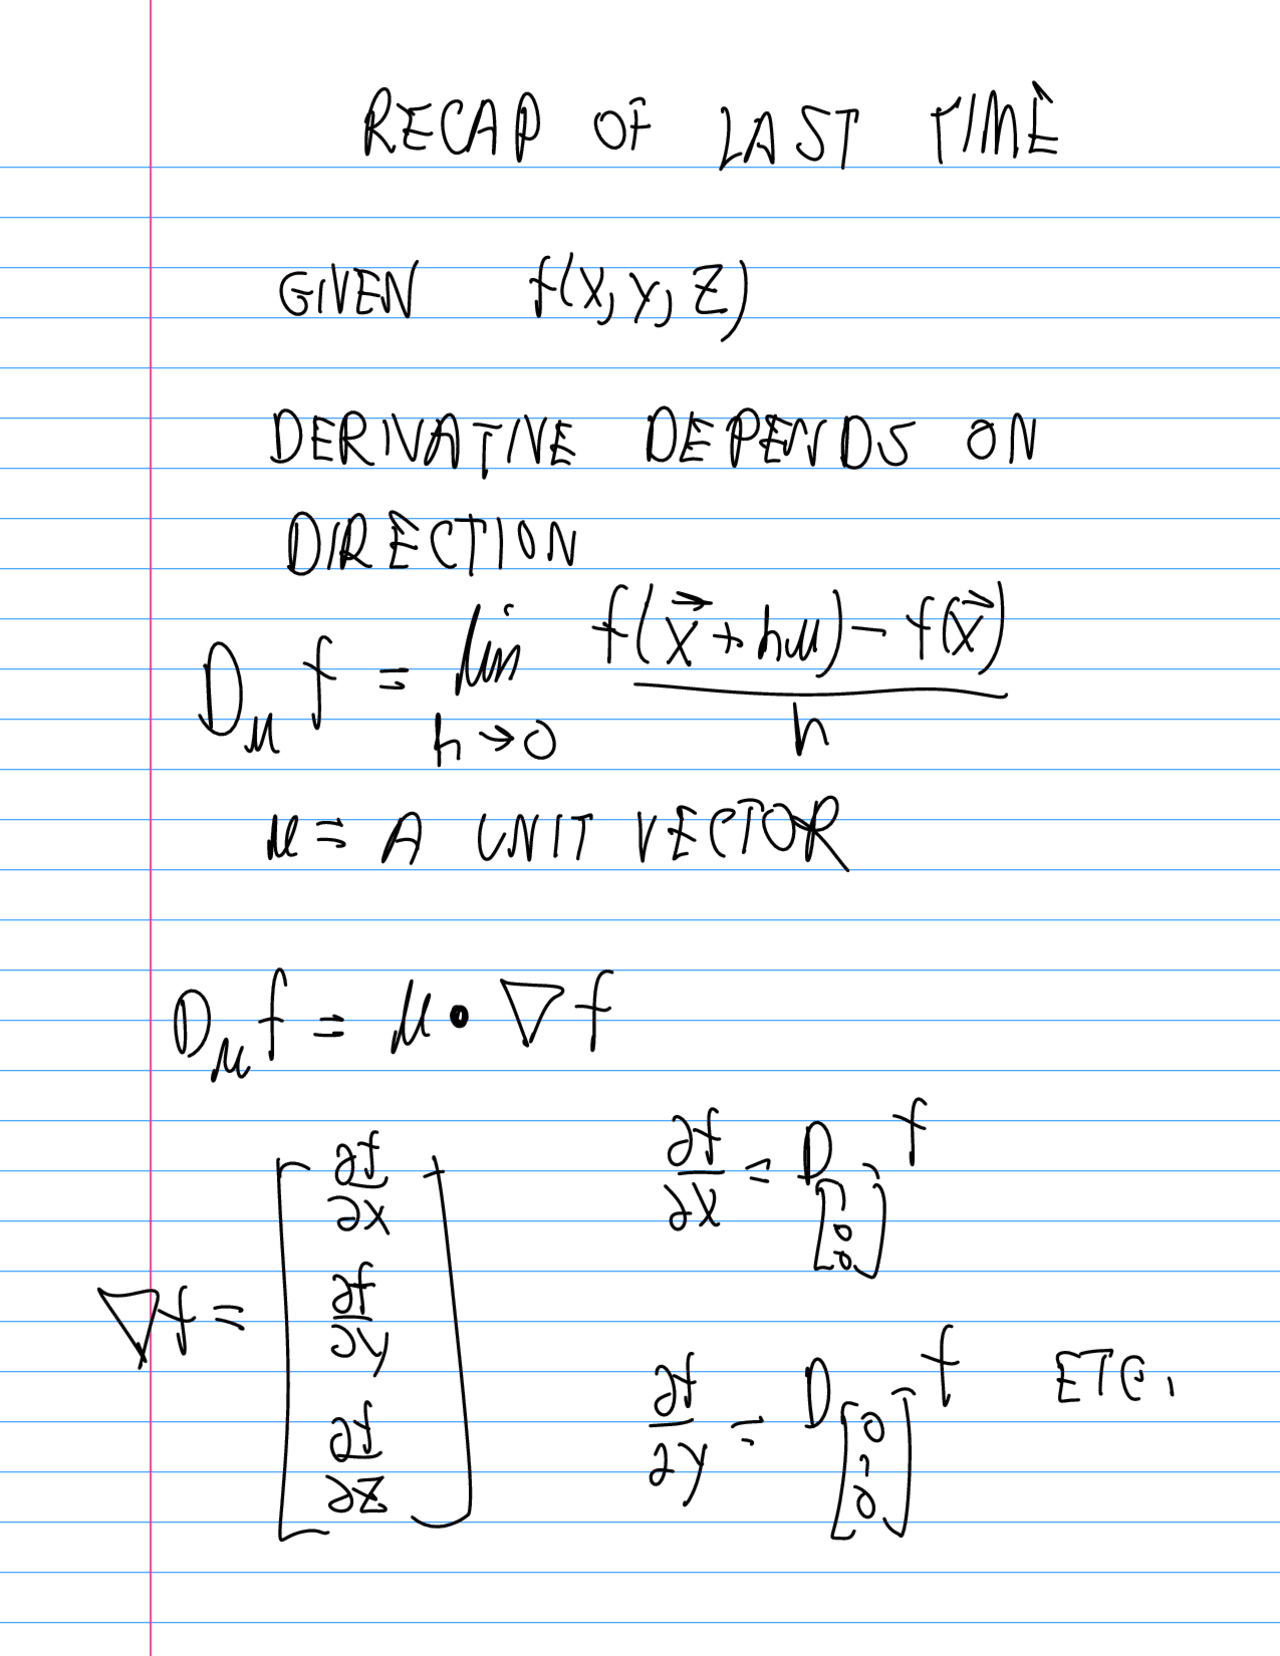 RECAP OF LAST TIME
GIVEN f(x, y, z)
DERIVATIVE DEPENDS ON
DIRECTION
D_u f = lim_{h→0} \frac{f(\vec{x} + hu) - f(\vec{x})}{h}
u = A UNIT VECTOR
D_u f = u • ∇f
∇f = \begin{bmatrix} \frac{∂f}{∂x} \\ \frac{∂f}{∂y} \\ \frac{∂f}{∂z} \end{bmatrix}
\frac{∂f}{∂x} = D_{\begin{bmatrix} 1 \\ 0 \\ 0 \end{bmatrix}} f
\frac{∂f}{∂y} = D_{\begin{bmatrix} 0 \\ 1 \\ 0 \end{bmatrix}} f ETC.